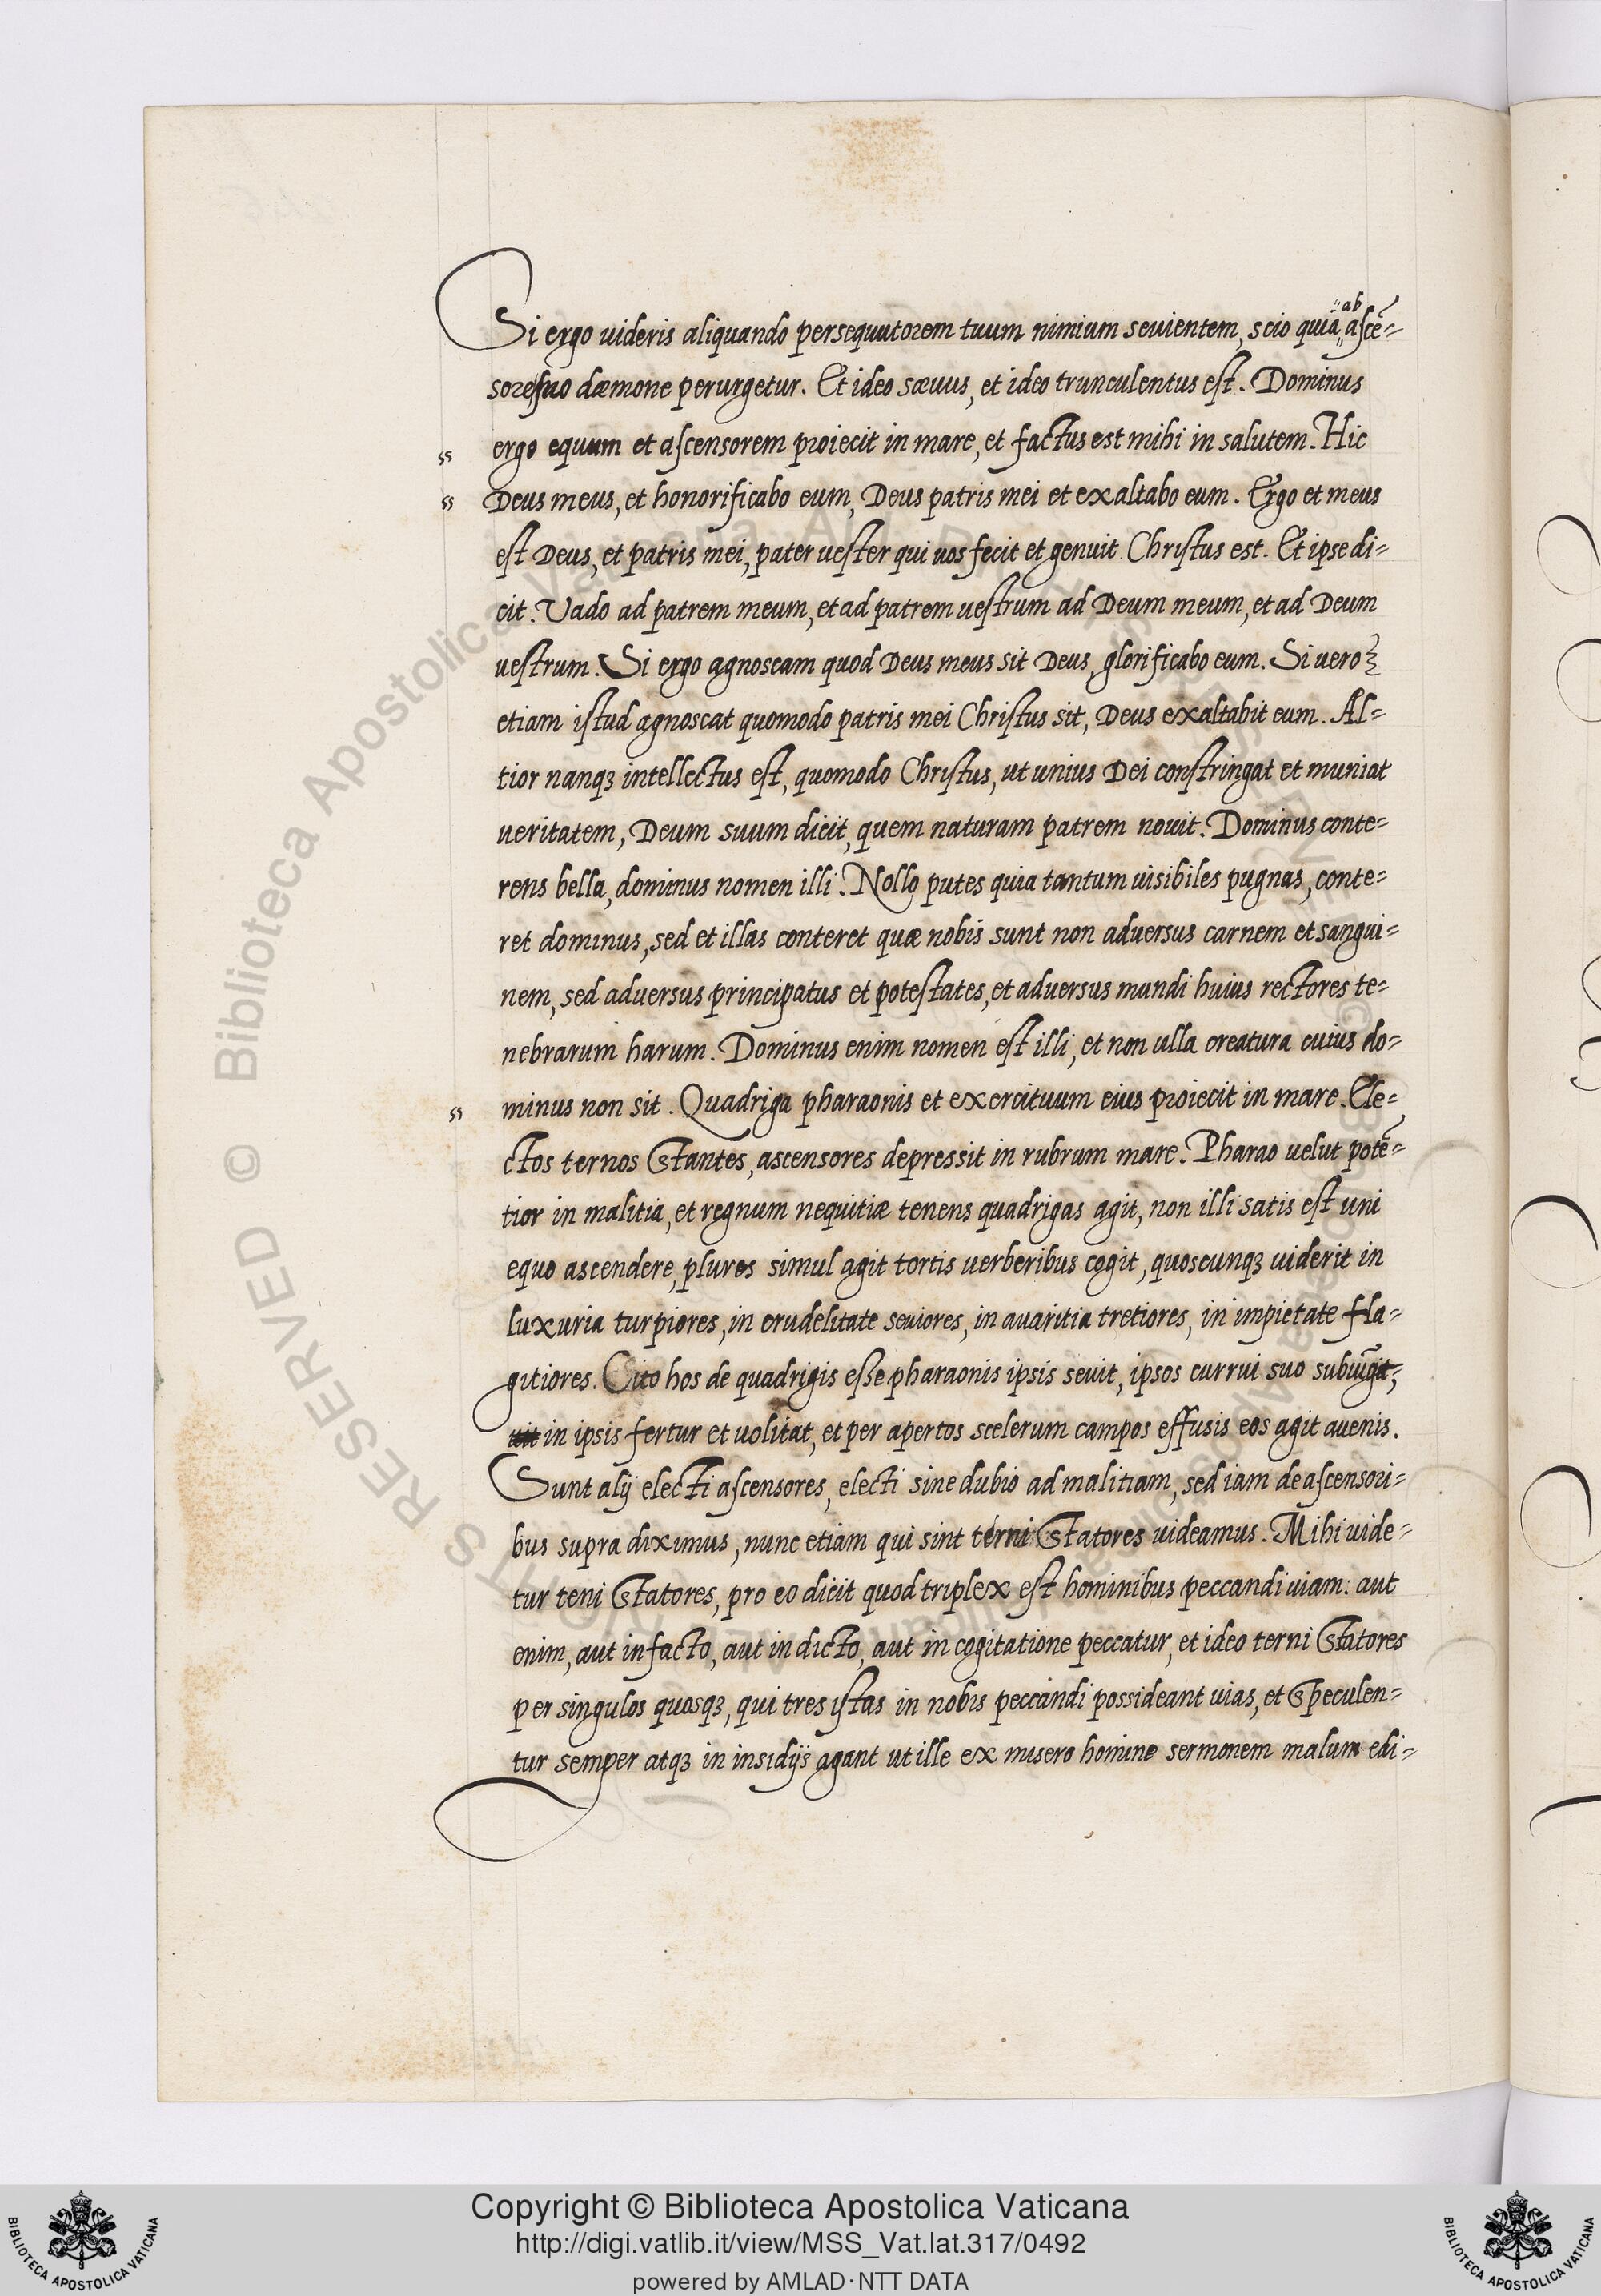 Si ergo uideris aliquando persequutorem tuum nimium seuientem, scio quia ab ascē=
sore suo dæmone perurgetur. Et ideo sæuus, et ideo trunculentus est. Dominus
ergo equum et ascensorem proiecit in mare, et factus est mihi in salutem. Hic
Deus meus, et honorificabo eum, Deus patris mei et exaltabo eum. Ergo et meus
est Deus, et patris mei, pater uester qui uos fecit et genuit Christus est. Et ipse di=
cit. Vado ad patrem meum, et ad patrem uestrum ad Deum meum, et ad Deum
uestrum. Si ergo agnoscam quod Deus meus sit Deus, glorificabo eum. Si uero
etiam istud agnoscat quomodo patris mei Christus sit, Deus exaltabit eum. Al=
tior nanqꝫ intellectus est, quomodo Christus, ut unius Dei constringat et muniat
ueritatem, Deum suum dicit, quem naturam patrem nouit. Dominus conte=
rens bella, dominus nomen illi. Nollo putes quia tantum uisibiles pugnas, conte=
ret dominus, sed et illas conteret quæ nobis sunt non aduersus carnem et sangui=
nem, sed aduersus principatus et potestates, et aduersus mundi huius rectores te=
nebrarum harum. Dominus enim nomen est illi, et non ulla creatura cuius do=
minus non sit. Quadriga pharaonis et exercituum eius proiecit in mare. Ele=
ctos ternos stantes, ascensores depressit in rubrum mare. Pharao velut potē=
tior in malitia, et regnum nequitiæ tenens quadrigas agit, non illi satis est uni
equo ascendere, plures simul agit tortis uerberibus cogit, quoscunqꝫ uiderit in
luxuria turpiores, in crudelitate seuiores, in auaritia tretiores, in impietate fla=
gitiores. Cito hos de quadrigis esse pharaonis ipsis seuit, ipsos currui suo
in ipsis fertur et uolitat, et per apertos scelerum campos effusis eos agit auenis.
Sunt alij electi ascensores, electi sine dubio ad malitiam, sed iam de ascensori=
bus supra diximus, nunc etiam qui sint terni statores uideamus. Mihi uide=
tur teni statores, pro eo dicit quod triplex est hominibus peccandi uiam: aut
enim, aut in facto, aut in dicto, aut in cogitatione peccatur, et ideo terni statores
per singulos quosqꝫ, qui tres istas in nobis peccandi possideant uias, et speculen=
tur semper atqꝫ in insidijs agant ut ille ex misero homine sermonem malum edi=
Copyright © Biblioteca Apostolica Vaticana
http://digi.vatlib.it/view/MSS_Vat.lat.317/0492
powered by AMLAD·NTT DATA